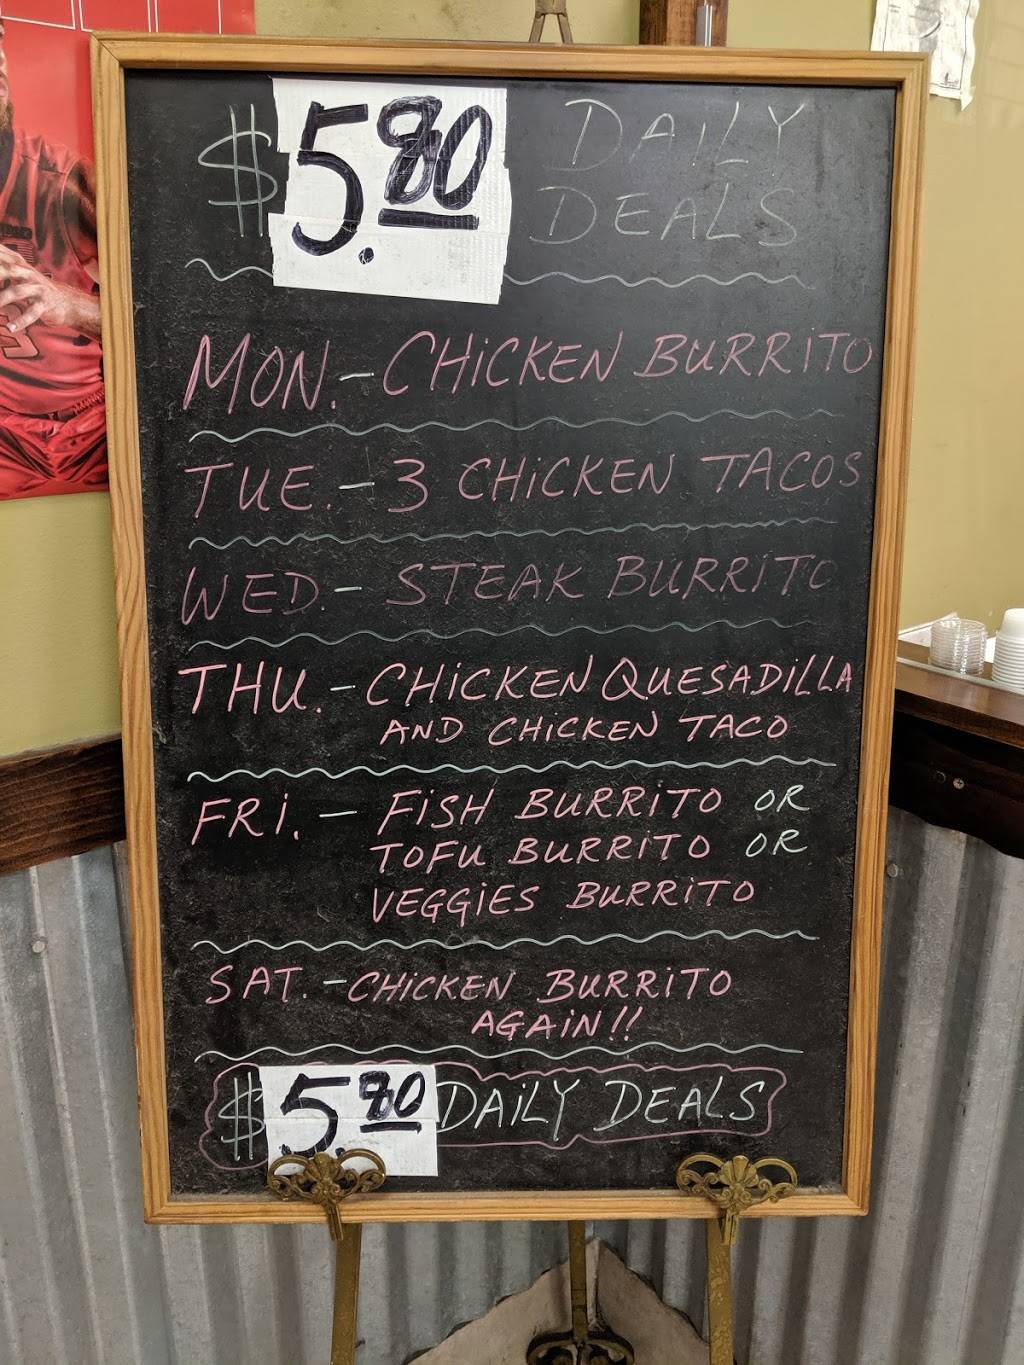 $5.80 DAILY
DEALS
MON. - CHICKEN BURRITO
TUE. - 3 CHICKEN TACOS
WED. - STEAK BURRITO
THU. - CHICKEN QUESADILLA
AND CHICKEN TACO
FRI. - FISH BURRITO OR
TOFU BURRITO OR
VEGGIES BURRITO
SAT. - CHICKEN BURRITO
AGAIN!!
$5.80 DAILY DEALS